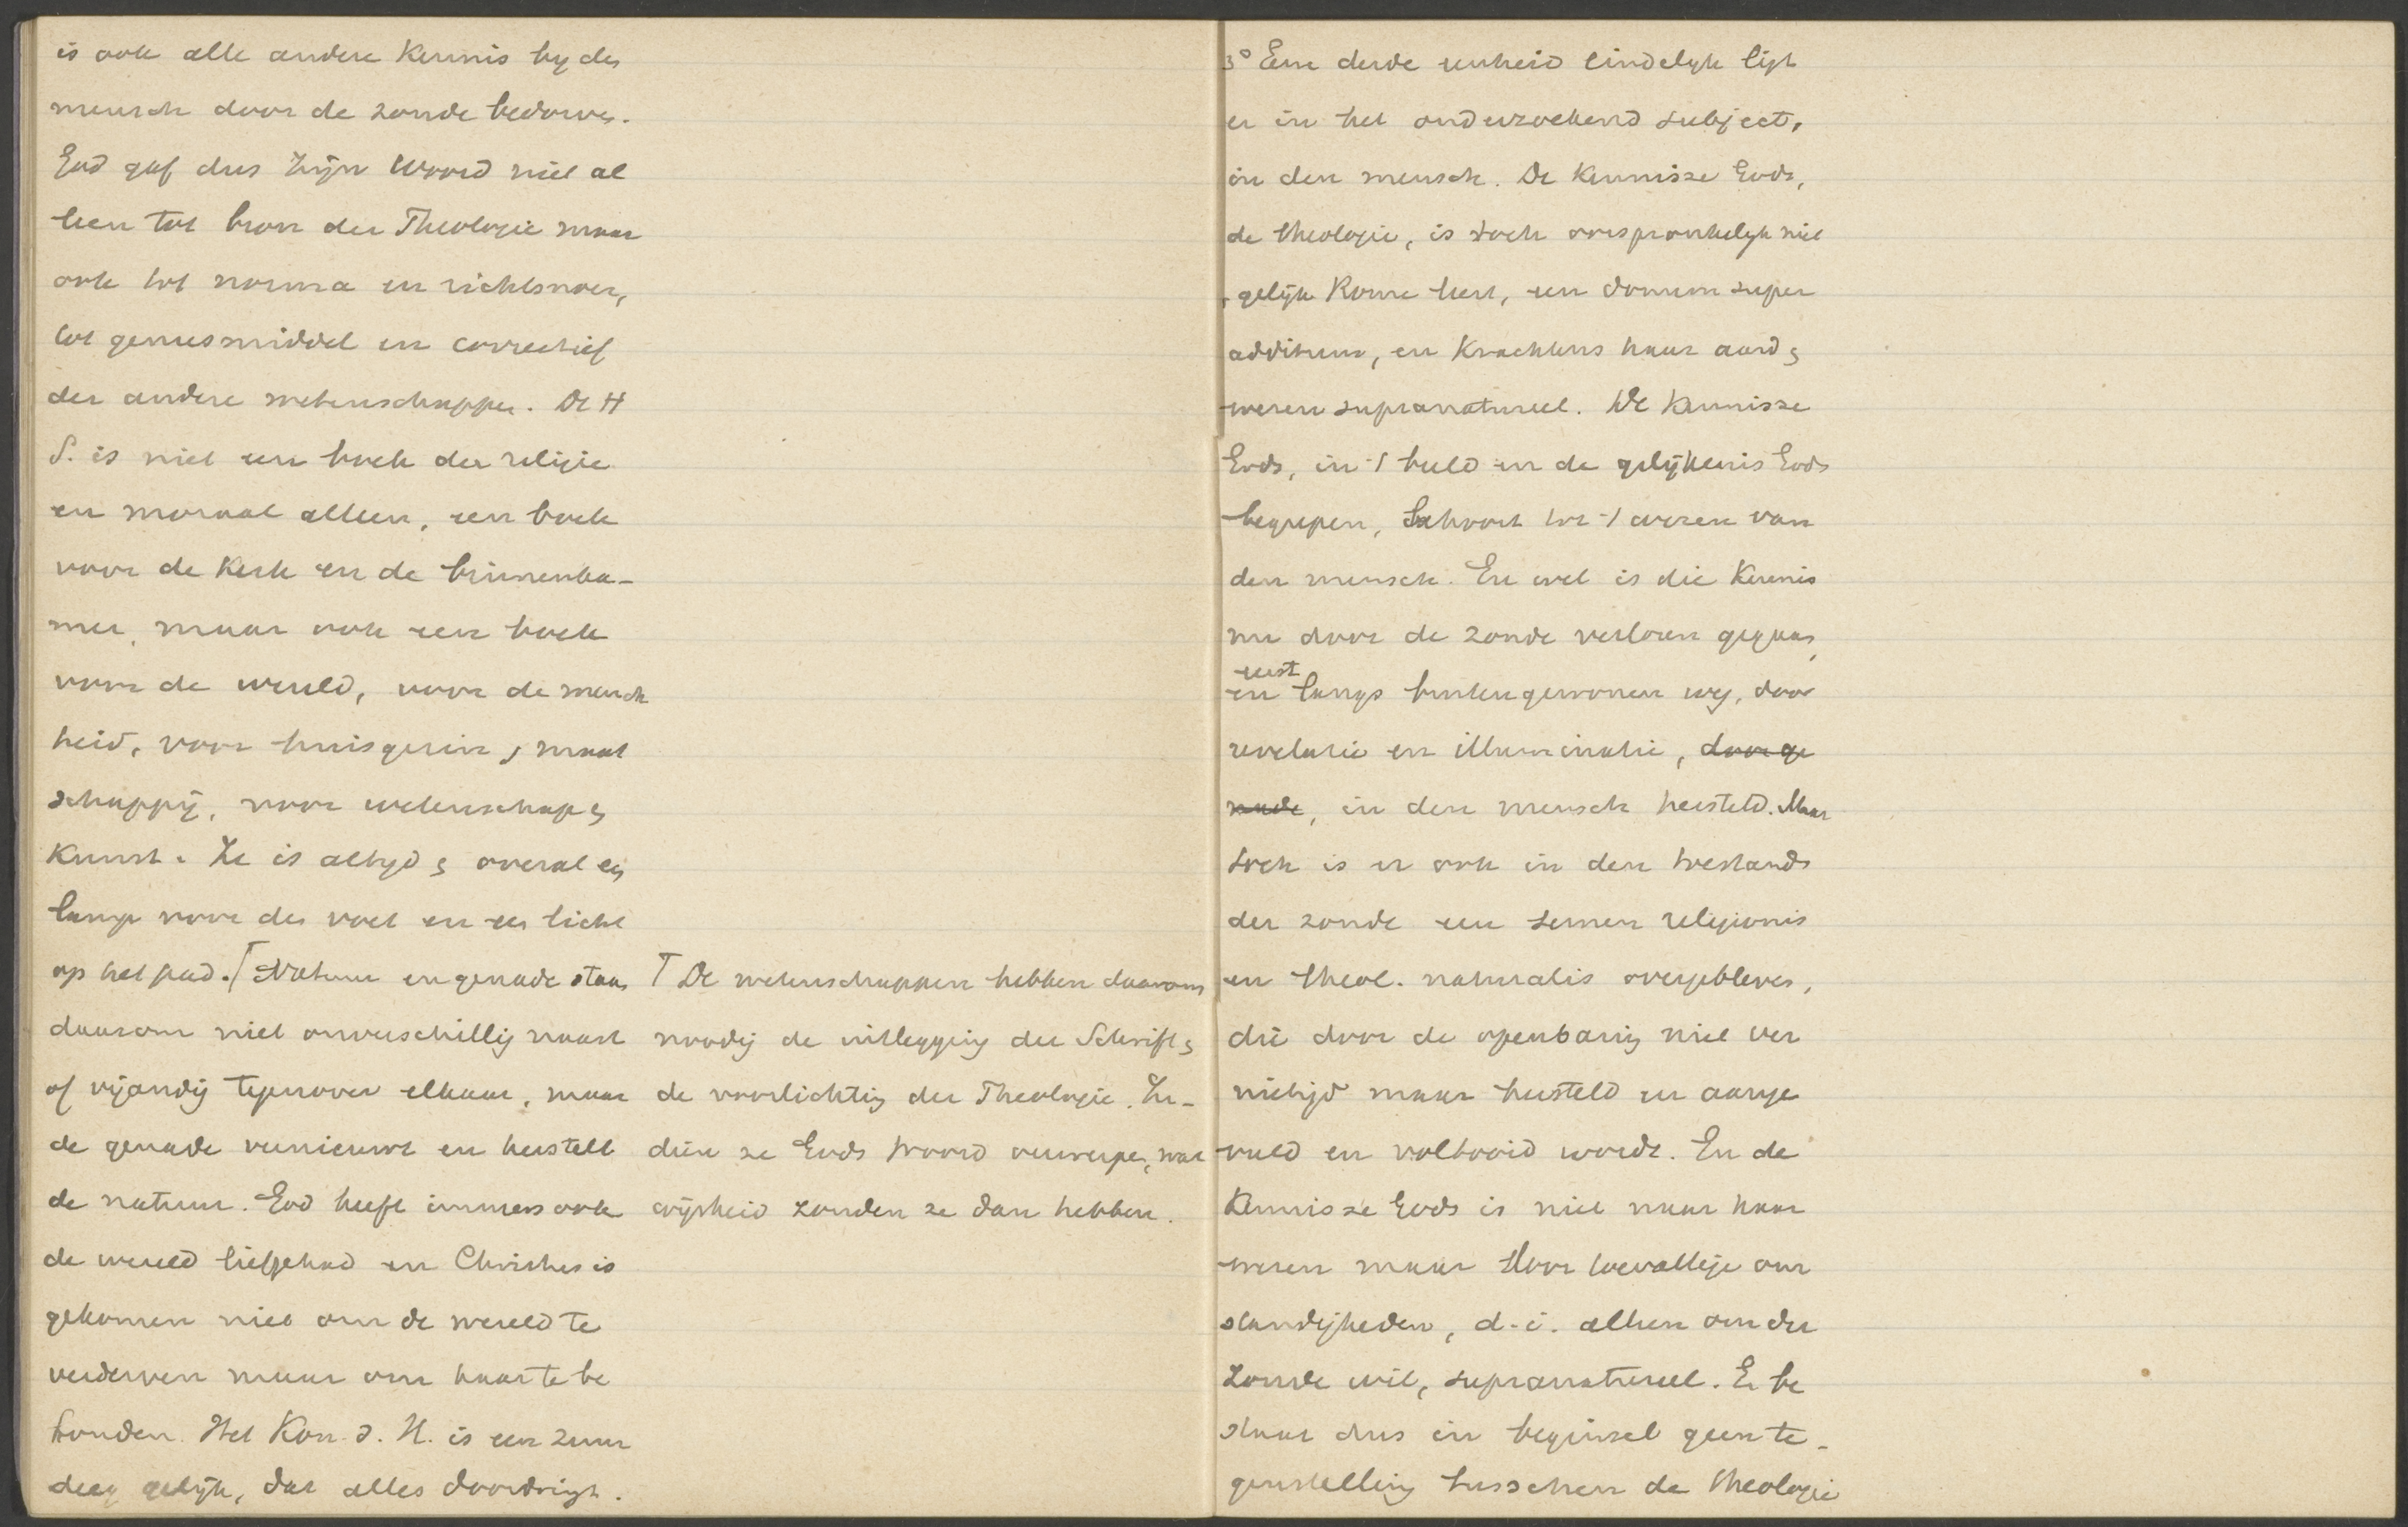 is ook alle andere kennis by den
mensch door de zonde bedorven.
God gaf dus Zijn Woord niet al
leen tot bron der Theologie maar
ook tot norma en richtsnoer,
tot geneesmiddel en correctief
der andere wetenschappen. De H
S. is niet een boek der religie
en moraal alleen, een boek
voor de Kerk en de binnenka-
mer, maar ook een boek
voor de wereld, voor de mensch
heid, voor huisgezin, maat
schappij, voor wetenschap en
Kunst. Ze is altyd en overal een
lamp voor den voet en een licht
op het pad. ⌈ Natuur en genade staan
daarom niet onverschillig naast
of vijandig tegenover elkaar, maar
de genade vernieuwt en herstelt
de natuur. God heeft immers ook
de wereld liefgehad en Christus is
gekomen niet om de wereld te
verderven maar om haar te be
houden. Het Kon. d. H. is een zuur
deeg gelijk, dat alles doordringt.
⌈ De wetenschappen hebben daarom
noodig de uitlegging der Schrift en
de voorlichting der Theologie. In-
dien ze Gods Woord verwerpen, wat
wijsheid zouden ze dan hebben.
3° Eene derde eenheid eindelyk ligt
er in het onderzoekend subject,
in den mensch. De kennisse Gods,
de theologie, is toch oorspronkelyk niet
, gelijk Rome leert, een donum super
additum, en krachtens haar aard en
wezen supranatureel. De kennisse
Gods, in 't beeld en de gelijkenis Gods
begrepen, behoort tot 't wezen van
den mensch. En wel is die kennis
nu door de zonde verloren gegaan,
eerst
en langs buitengewonen weg, door
revelatie en illuminatie, door ge
nade, in den mensch hersteld. Maar
toch is er ook in den toestand
der zonde een semen religionis
en theol. naturalis overgebleven,
die door de openbaring niet ver
nietigd maar hersteld en aange
vuld en voltooid wordt. En de
kennisse Gods is niet naar haar
wezen maar door toevallige om
standigheden, d.i. alleen om der
zonde wil, supranatureel. Er be
staat dus in beginsel geen te-
genstelling tusschen de theologie